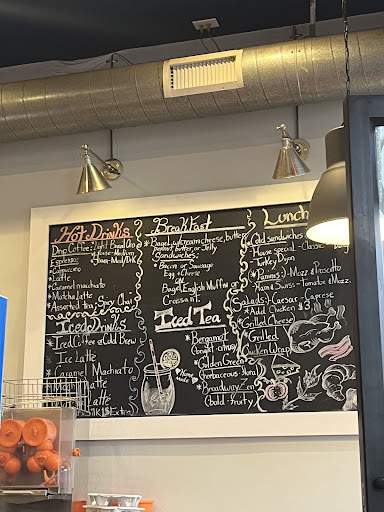 Hot Drinks
Drip Coffee: Light-Breakfast
House-Medium
French-Dark
Espresso:
*Cappuccino
*Latte
*Caramel macchiato
*Matcha Latte
*Assorted tea; Spicy Chai
Iced Drinks
*Iced Coffee *Cold Brew
*Iced Latte
*Caramel Machiato
Latte
Latte
Extra)
Breakfast
*Bagel w/cream cheese, butter
peanut butter, or Jelly
Sandwiches:
*Bacon or Sausage
Egg & Cheese
on
Bagel, English Muffin or
Croissant
Iced Tea
*Bergamot
(bright-citrusy)
*Golden Green
(herbaceous-floral)
*Broadway Zen
(bold-fruity)
Home
made
Lunch
Cold sandwiches
House special - Classic
Turkey Dijon
*Paninis - Mozz & Prosciutto
Ham & Swiss - Tomato & Mozz
Salads: Caesar - Caprese
*Add Chicken $3
*Grilled Cheese
*Grilled
Chicken Wrap